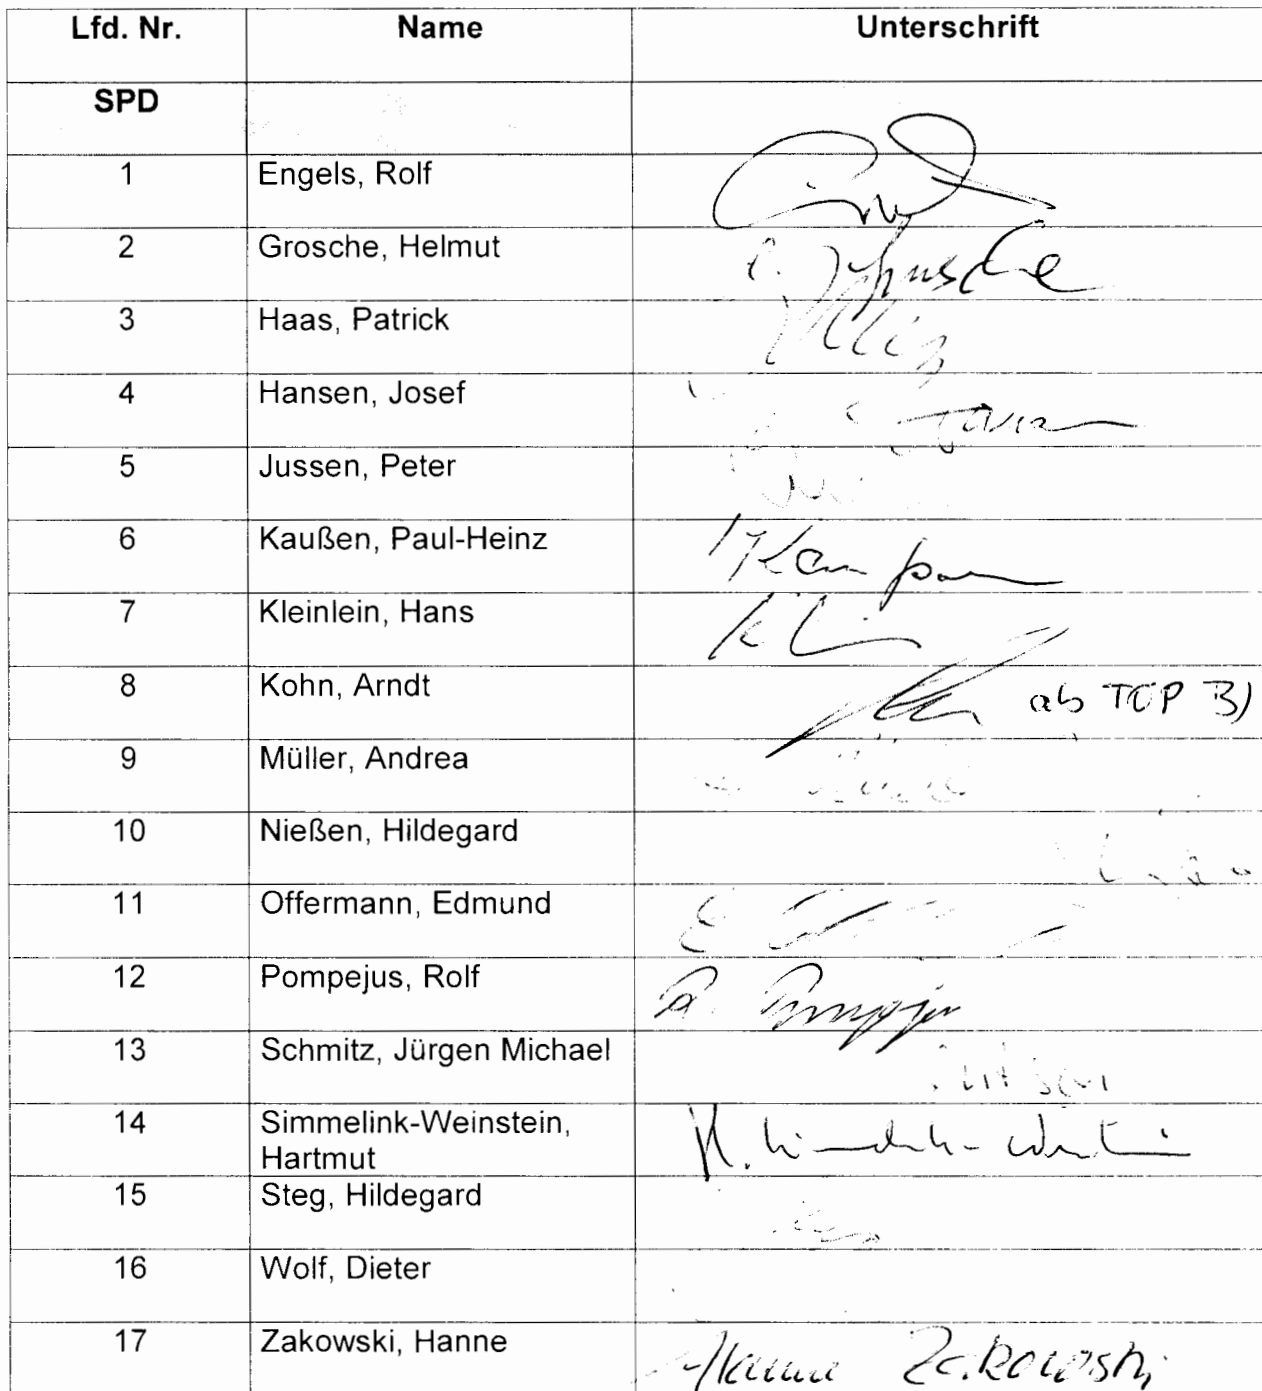 Lfd. Nr. Name Unterschrift
SPD
1 Engels, Rolf
2 Grosche, Helmut
3 Haas, Patrick
4 Hansen, Josef
5 Jussen, Peter
6 Kaußen, Paul-Heinz
7 Kleinlein, Hans
8 Kohn, Arndt ab TOP 3)
9 Müller, Andrea
10 Nießen, Hildegard
11 Offermann, Edmund
12 Pompejus, Rolf
13 Schmitz, Jürgen Michael
14 Simmelink-Weinstein,
Hartmut
15 Steg, Hildegard
16 Wolf, Dieter
17 Zakowski, Hanne Hanne Zakowski